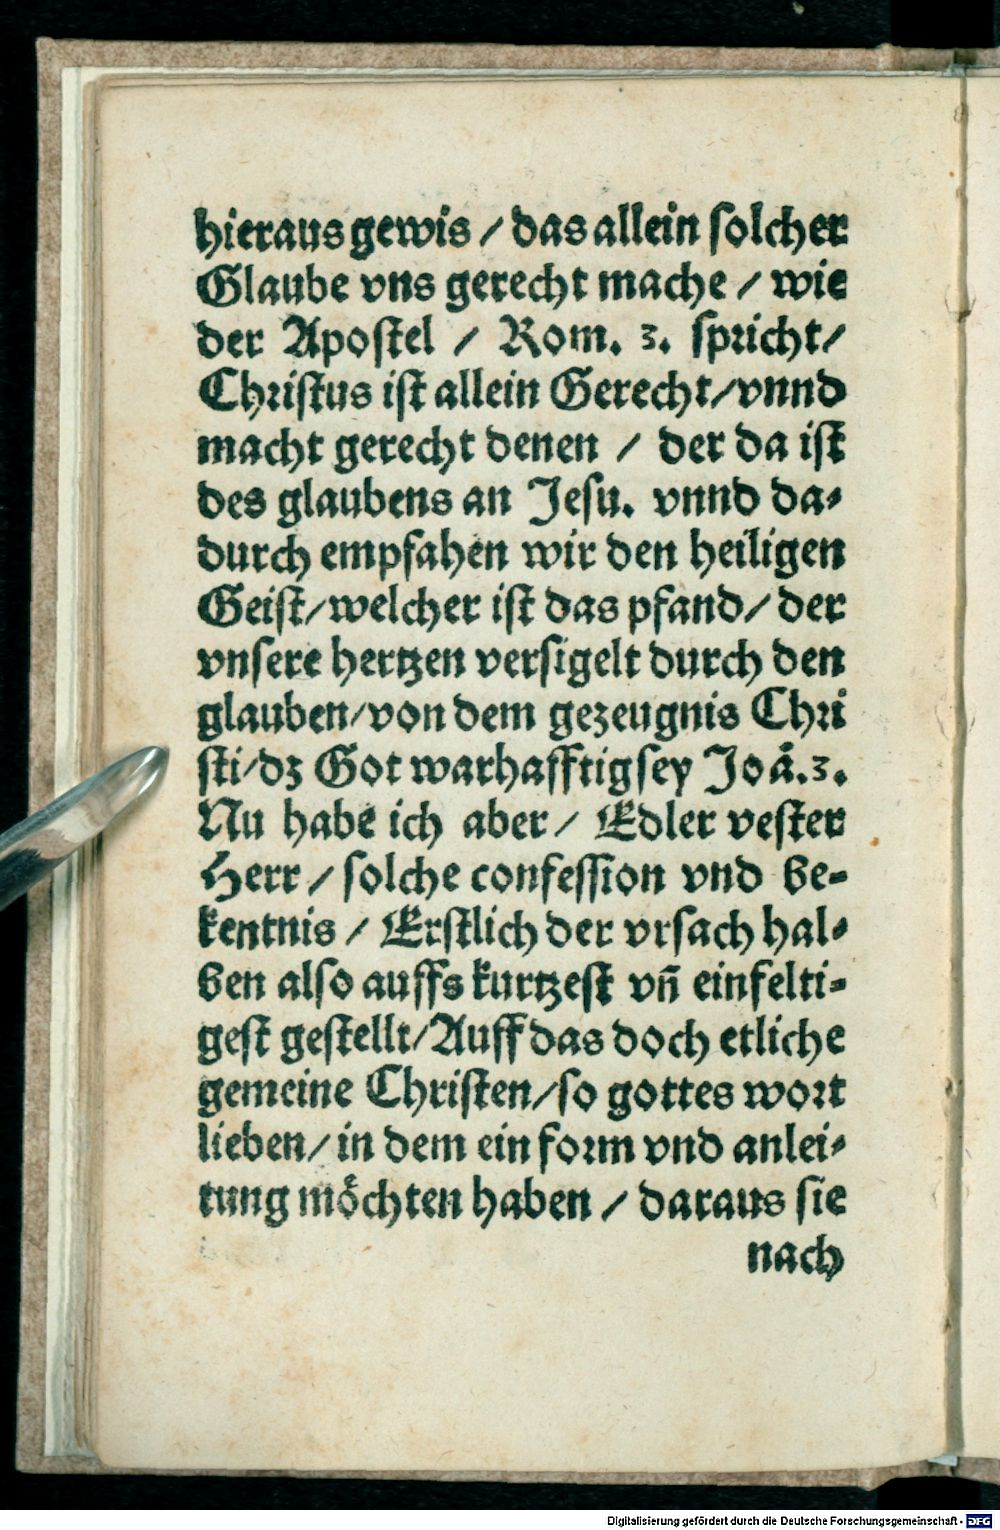 hieraus gewis / das allein solcher
Glaube vns gerecht mache / wie
der Apostel / Rom. 3. spricht/
Christus ist allein Gerecht/vnnd
macht gerecht denen / der da ist
des glaubens an Jesu. vnnd da-
durch empfahen wir den heiligen
Geist/welcher ist das pfand/ der
vnsere hertzen versigelt durch den
glauben/von dem gezeugnis Chri
sti/dz Got warhafftig sey Joā.3.
Nu habe ich aber/ Edler vester
Herr / solche confession vnd be-
kentnis / Erstlich der vrsach hal-
ben also auffs kurtzest vn̄ einfelti-
gest gestellt/Auff das doch etliche
gemeine Christen/so gottes wort
lieben/in dem ein form vnd anlei-
tung möchten haben / daraus sie
nach
Digitalisierung gefördert durch die Deutsche Forschungsgemeinschaft - DFG